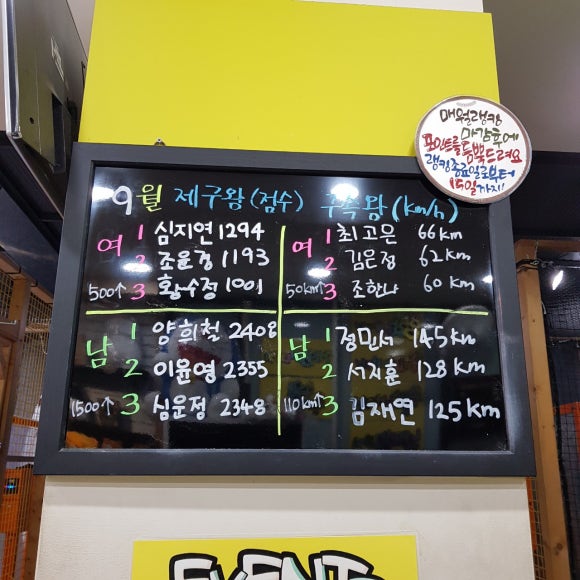 매월랭킹
마감후에
포인트를 듬뿍드려요
랭킹종료일로부터
15일까지!
9월 제구왕(점수) 구속왕(km/h)
여 1 심지연 1294
2 조윤경 1193
500↑ 3 황수정 1001
1 최고은 66km
여 2 김은정 62km
50km↑ 3 조한나 60km
남 1 양희철 2408
2 이윤영 2355
1500↑ 3 심운정 2348
남 1 정민서 145km
2 서지훈 128km
110km↑ 3 김재연 125km
EVENT